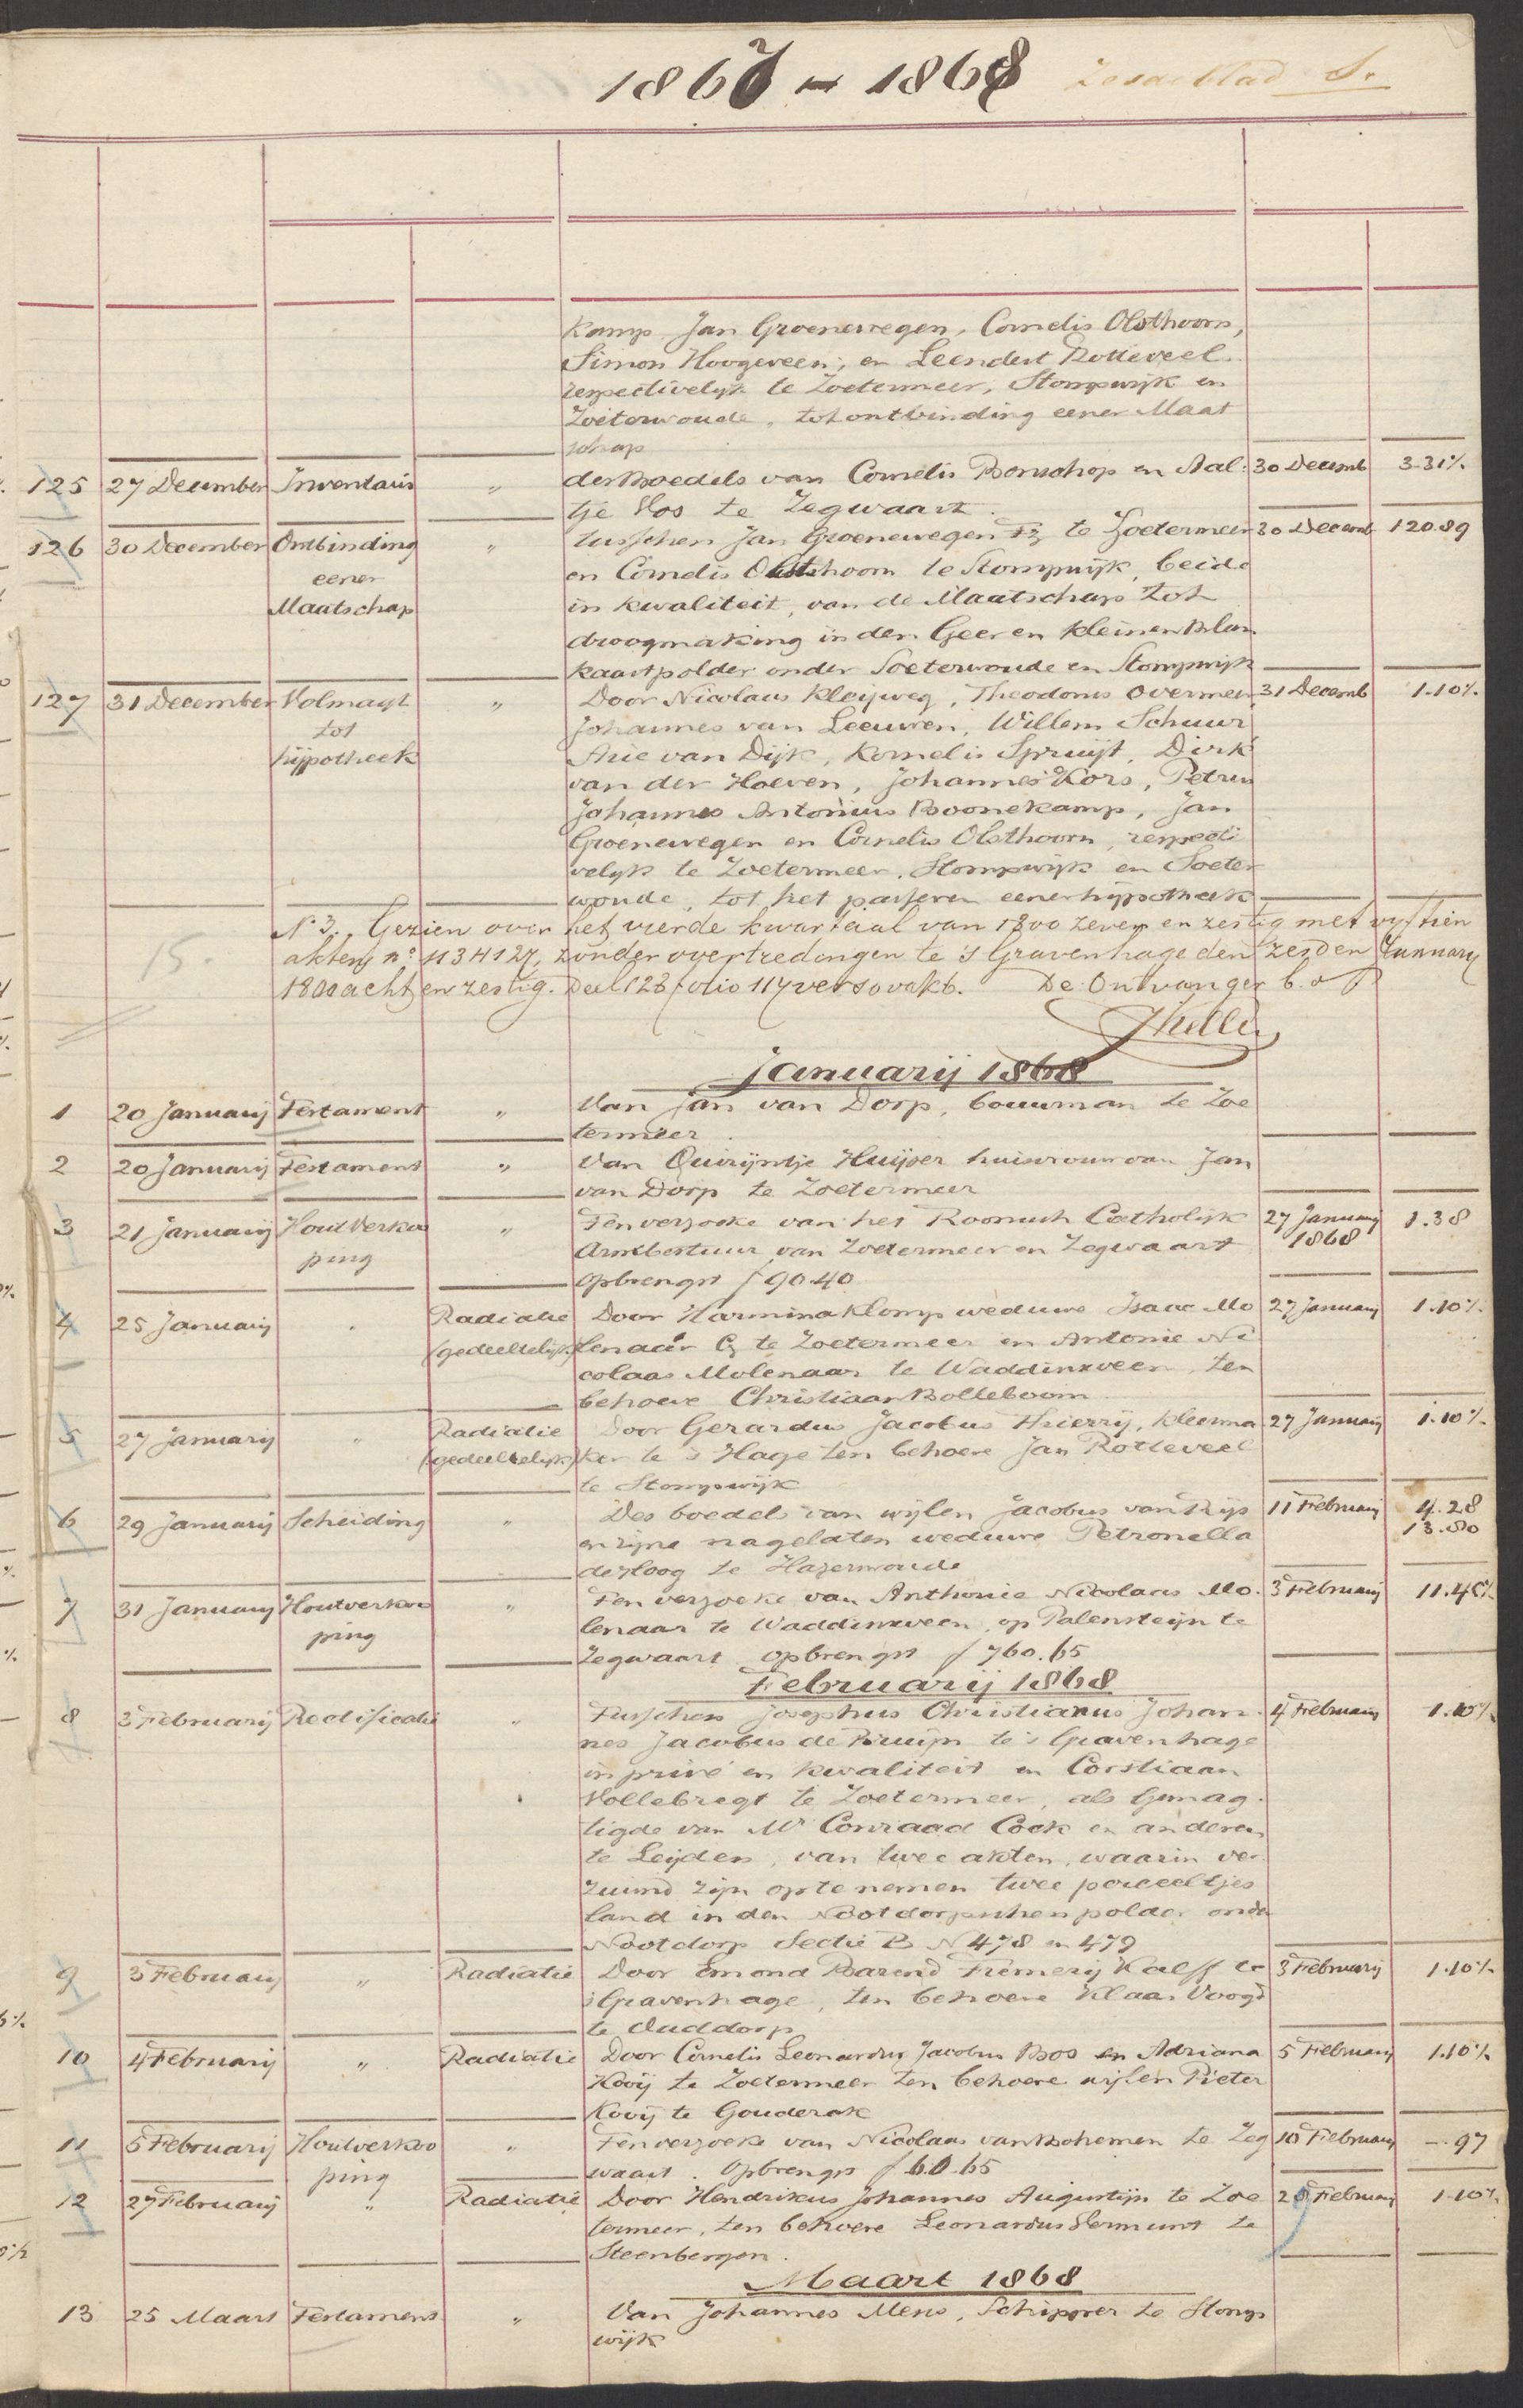 1867 - 1868 Zesdeblad S.
Kamp Jan Groenewegen, Cornelis Olsthoorn,
Simon Hoogeveen, en Leendert Rotteveel
respectivelijk te Zoetermeer, Stompwijk en
Zoeterwoude, tot ontbinding eener Maat
schap
125 27 December Inventaris " der Boedels van Cornelis Bonschop en Aal- 30 Decemb 3.31½
tje Vos te Zegwaart.
126 30 December Ontbinding " tusschen Jan Groenewegen Fz te Zoetermeer 30 Decemb 120.89
en Cornelis Olsthoorn te Stompwijk, beide
eener
in kwaliteit, van de Maatschap tot
Maatschap
droogmaking in den Geer en kleinen Blan
kaartpolder onder Soeterwoude en Stompwijk
127 31 December Volmagt " Door Nicolaus Kleijweg, Theodorus Overmeer, 31 Decemb 1.10½
tot Johannes van Leeuwen, Willem Schuur
hijpotheek Arie van Dijk, Kornelis Spruijt, Dirk
van der Hoeven, Johannes Kors, Petrus
Johannes Antonius Boonekamp, Jan
Groenewegen en Cornelis Olsthoorn, respecti
velijk te Zoetermeer, Stompwijk en Soeter
woude, tot het passeren eener hijpotheek
N. 3. Gezien over het vierde kwartaal van 1800 zeven en zestig met vyftien
15. akten, no. 113 á 127, zonder overtredingen te 's Gravenhage den zesden January
1800 acht en zestig. Deel 123 folio 117 verso vak 6. De Ontvanger b. a
Januarij 1868
1 20 Januarij Testament " Van Jan van Dorp, bouwman te Zoe
termeer.
2 20 Januarij Testament " Van Quirijntje Huijser huisvrouw van Jan
van Dorp te Zoetermeer
3 21 Januarij Houtverkoo " Ten verzoeke van het Roomsch Catholijk 27 Januarij 1.38
ping Armbestuur van Zoetermeer en Zegwaart 1868
opbrengst f 90.40
4 25 Januarij " Radiatie Door Harmina Klomp weduwe Isaac Mo 27 Januarij 1.10½
(gedeeltelijk) lenaar te Zoetermeer en Antonie Ni
colaas Molenaar te Waddinxveen, ten
behoeve Christiaan Bolleboom.
5 27 Januarij " Radiatie Door Gerardus Jacobus Thierrij, kleerma 27 Januarij 1.10½
(gedeeltelijk) ker te 's Hage ten behoeve Jan Rotteveel
te Stompwijk
6 29 Januarij Scheiding " Des boedel van wijlen Jacobus van Rijs 11 Februarij 4.28
en zijne nagelaten weduwe Petronella 13.80
de Hoog te Hazerwoude
7 31 Januarij Houtverkoo " Ten verzoeke van Anthonie Nicolaas Mo- 3 Februarij 11.45½
ping lenaar te Waddinxveen, op Palensteijn te
Zegwaart opbrengst f 760.65
Februarij 1868
8 3 Februarij Rectificatie " Tusschen Josephus Christianus Johan 4 Februarij 1.10½
nes Jacobus de Bruijn te 's Gravenhage
in privé en kwaliteit en Corstiaan
Vollebregt te Zoetermeer, als gemag
tigde van Mr Conraad Cock en anderen
te Leijden, van twee akten, waarin ver
zuimd zijn op te nemen twee perceeltjes
land in den Nootdorpschen polder onder
Nootdorp Sectie B N 478 en 479
9 3 Februarij " Radiatie Door Emond Barend Fremerij Kalff te 3 Februarij 1.10½
's Gravenhage, ten behoeve Klaas Voogd
te Ouddorp
10 4 Februarij " Radiatie Door Cornelis Leonardus Jacobus Bos en Adriana 5 Februarij 1.10½
Kooij te Zoetermeer ten behoeve wijlen Pieter
Kooij te Gouderak
11 5 Februarij Houtverkoo " Ten verzoeke van Nicolaas van Bohemen te Zeg 10 Februarij -.97
ping waart. Opbrengst f 60.65
12 27 Februarij " Radiatie Door Hendrikus Johannes Augustijn te Zoe 28 Februarij 1.10½
termeer, ten behoeve Leonardus Vermunt te
Steenbergen.
Maart 1868
13 25 Maart Testament " Van Johannes Mens, Schipper te Stomp
wijk